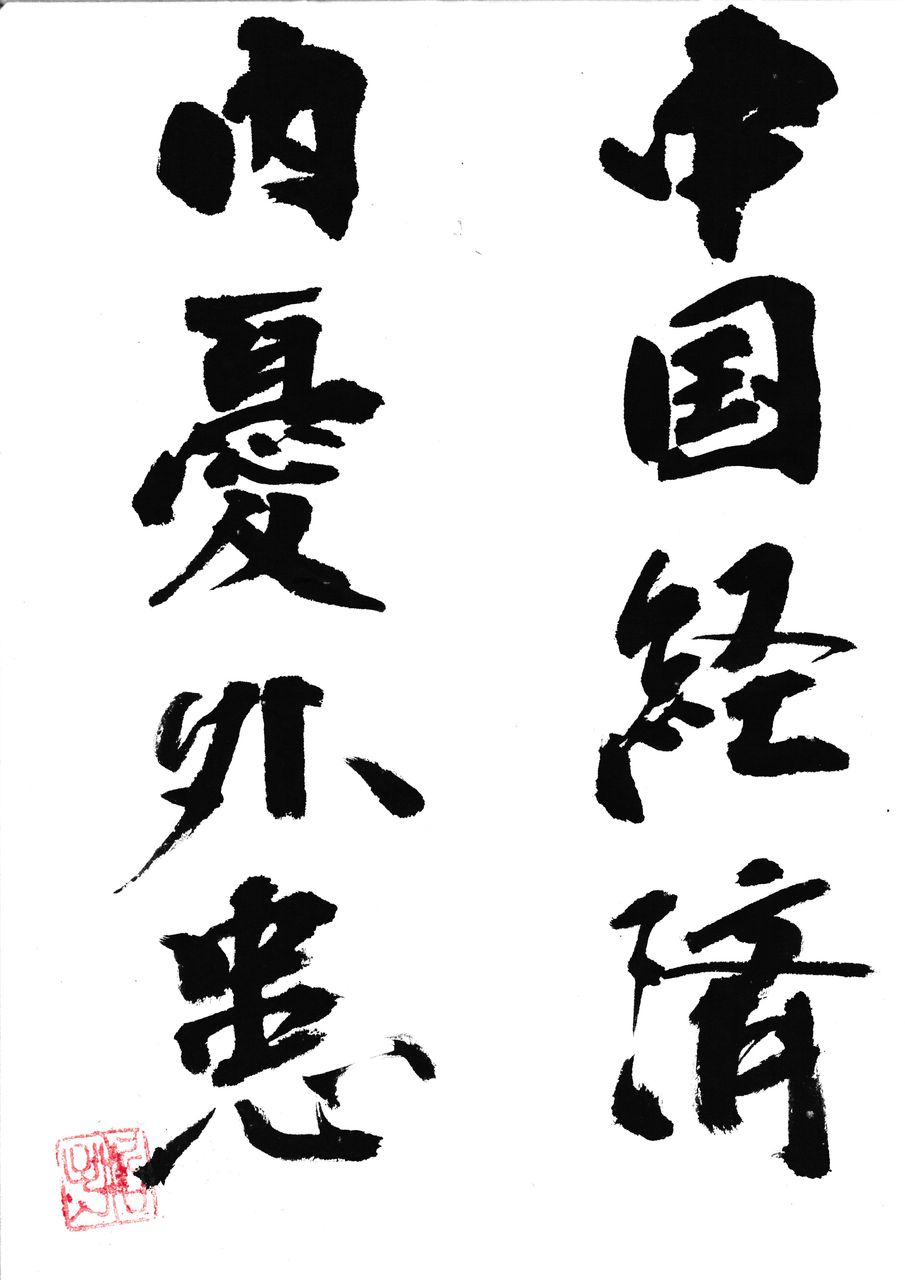 中国経済
内憂外患